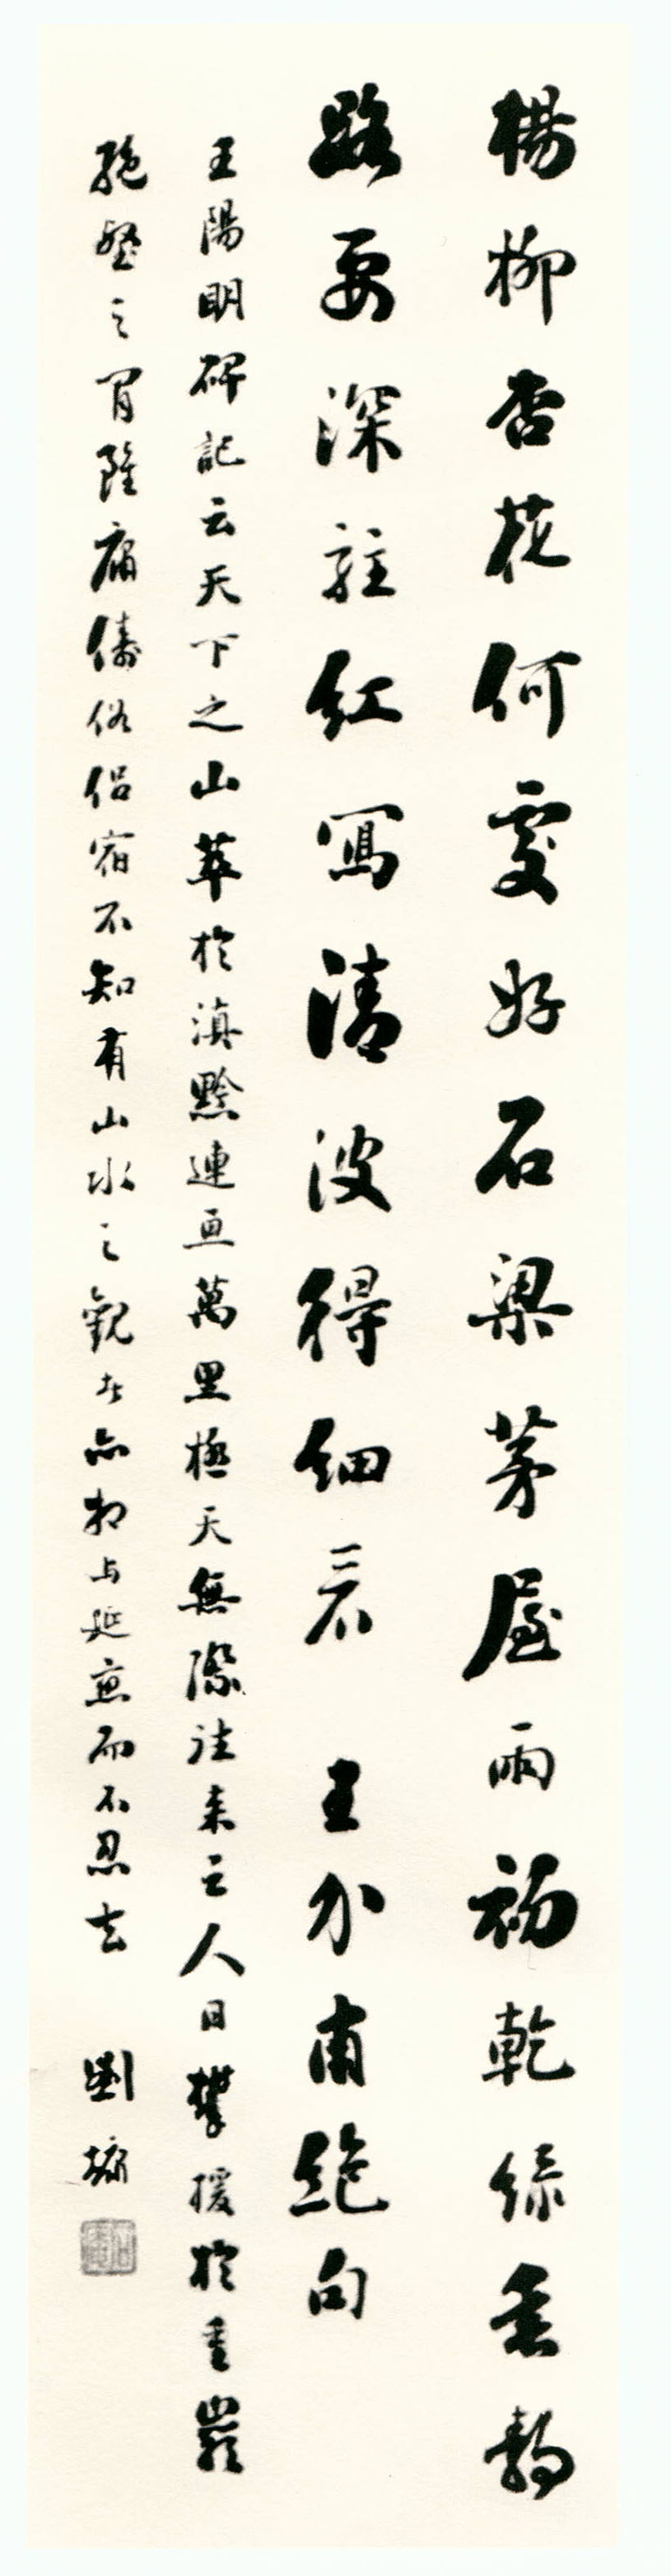 楊柳杏花何處好石梁茅屋雨初乾綠垂靜
路要深駐紅寫清波得細看 王介甫絕句
王陽明碑記云天下之山萃於滇黔連亘萬里極天無際往来之人日攀援於重巖
絕壑之間雖庸儔俗侶宿不知有山水之觀者亦相与延戀而不忍去 劉墉